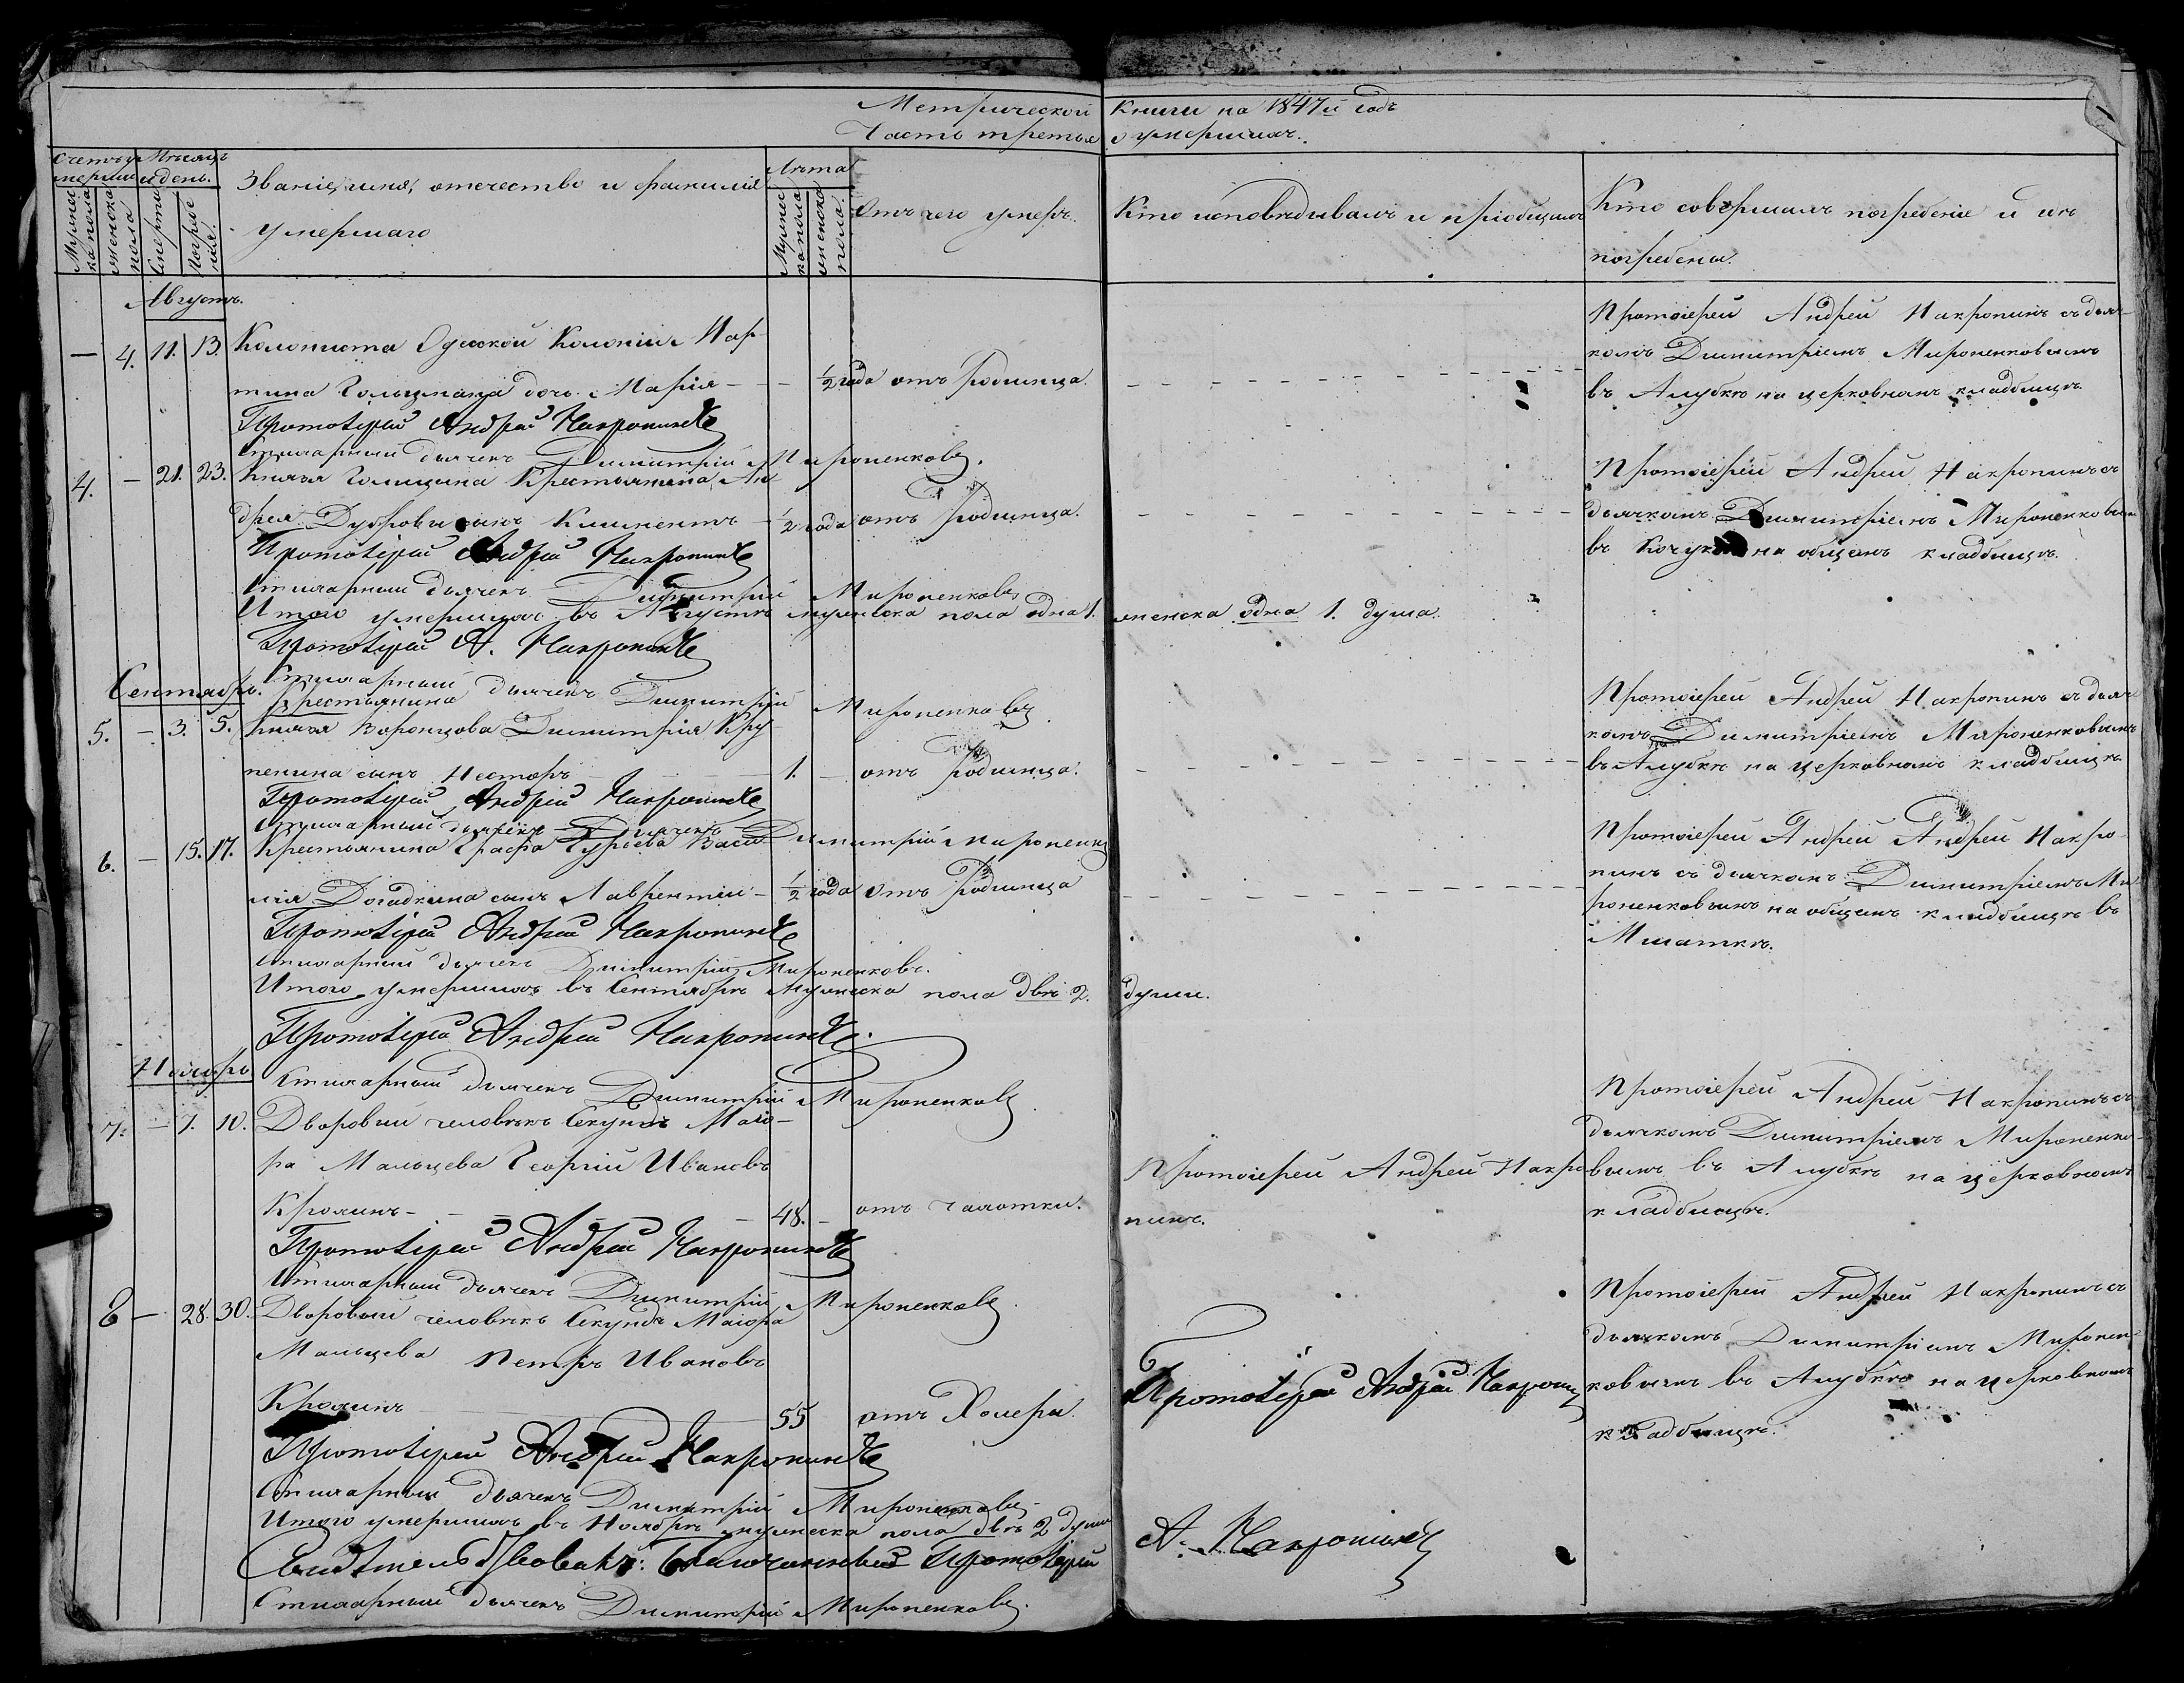 Метрической книги на 1847й годъ
Часть третья о умершихъ.
Счетъ умершихъ
Мужеска пола
женска пола
Мѣсяцъ и день.
Смерти
Погребенія.
Званіе, имя, отечество и фамилія
умершаго
Лѣта
Мужеска пола
женска пола.
Отъ чего умеръ.
Кто исповѣдывалъ и пріобщалъ
Кто совершалъ погребеніе и гдѣ
погребены.
Августъ.
— 4. 11. 13. Колониста Одесской Колоніи Мар-
тина дочь Марія — — ½ года отъ родимца.
Протоіерей Андрей Накропинъ
Протоіерей Андрей Накропинъ съ дьяч-
комъ Димитріемъ Мироненковымъ
въ Алупкѣ на церковномъ кладбищѣ
Стихарный дьячекъ Димитрій Мироненковъ.
4. — 21. 23. Князя Голицина Крестьянина Ан-
дрея Дуброви сынъ Климентъ — ½ года отъ родимца.
Протоіерей Андрей Накропинъ
Протоіерей Андрей Накропинъ съ
дьячкомъ Димитріемъ Мироненковым
въ на общемъ кладбищѣ.
Стихарный дьячекъ Димитрій Мироненковъ
Итого умершихъ въ Августѣ мужеска пола одна 1. женска одна 1. душа.
Протоіерей А. Накропинъ
Стихарный дьячекъ Димитрій Мироненковъ
Сентябрь.
Крестьянина
5. — 3. 5. Князя Воронцова Димитрія Кру-
пенина сынъ Несторъ — 1. — отъ родимца.
Протоіерей Андрей Накропинъ
Протоіерей Андрей Накропинъ съ дьяч-
комъ Димитріемъ Мироненковымъ
въ Алупкѣ на церковномъ кладбищѣ
Стихарный дьячекъ Димитрій Мироненко
6. — 15. 17. Крестьянина Графа Гурьева Васи-
лія Догадкина сынъ Лаврентій — ½ года отъ родимца
Протоіерей Андрей Накропинъ
Протоіерей Андрей Андрей Накро-
пинъ съ дьячкомъ Димитріемъ Ми-
роненковымъ на общемъ кладбищѣ въ
Мшаткѣ.
Стихарный дьячекъ Димитрій Мироненковъ.
Итого умершихъ въ Сентябрѣ Мужеска пола двѣ 2. души.
Протоіерей Андрей Накропинъ.
Стихарный дьячекъ Димитрій Мироненковъ.
Ноябрь
7. — 7. 10. Дворовый человѣкъ Секундъ Маіо-
ра Мальцева Георгій Ивановъ
— 48. — отъ чахотки.
Протоіерей Андрей Накро-
пинъ.
Протоіерей Андрей Накропинъ съ
дьячкомъ Димитріемъ Мироненко-
вымъ въ Алупкѣ на церковномъ
кладбищѣ.
Протоіерей Андрей Накропинъ
Стихарный дьячекъ Димитрій Мироненковъ.
8 — 28. 30. Дворовый человѣкъ Секундъ Маіора
Мальцева Петръ Ивановъ
55 отъ Холеры.
Протоіерей Андрей Накропинъ
Протоіерей Андрей Накропинъ съ
дьячкомъ Димитріемъ Миронен-
ковымъ въ Алупкѣ на церковномъ
кладбищѣ.
Протоіерей Андрей Накропинъ
Стихарный дьячекъ Димитрій Мироненковъ.
Итого умершихъ въ Ноябрѣ мужеска пола двѣ 2 души
Протоіерей А. Накропинъ
Стихарный дьячекъ Димитрій Мироненковъ.